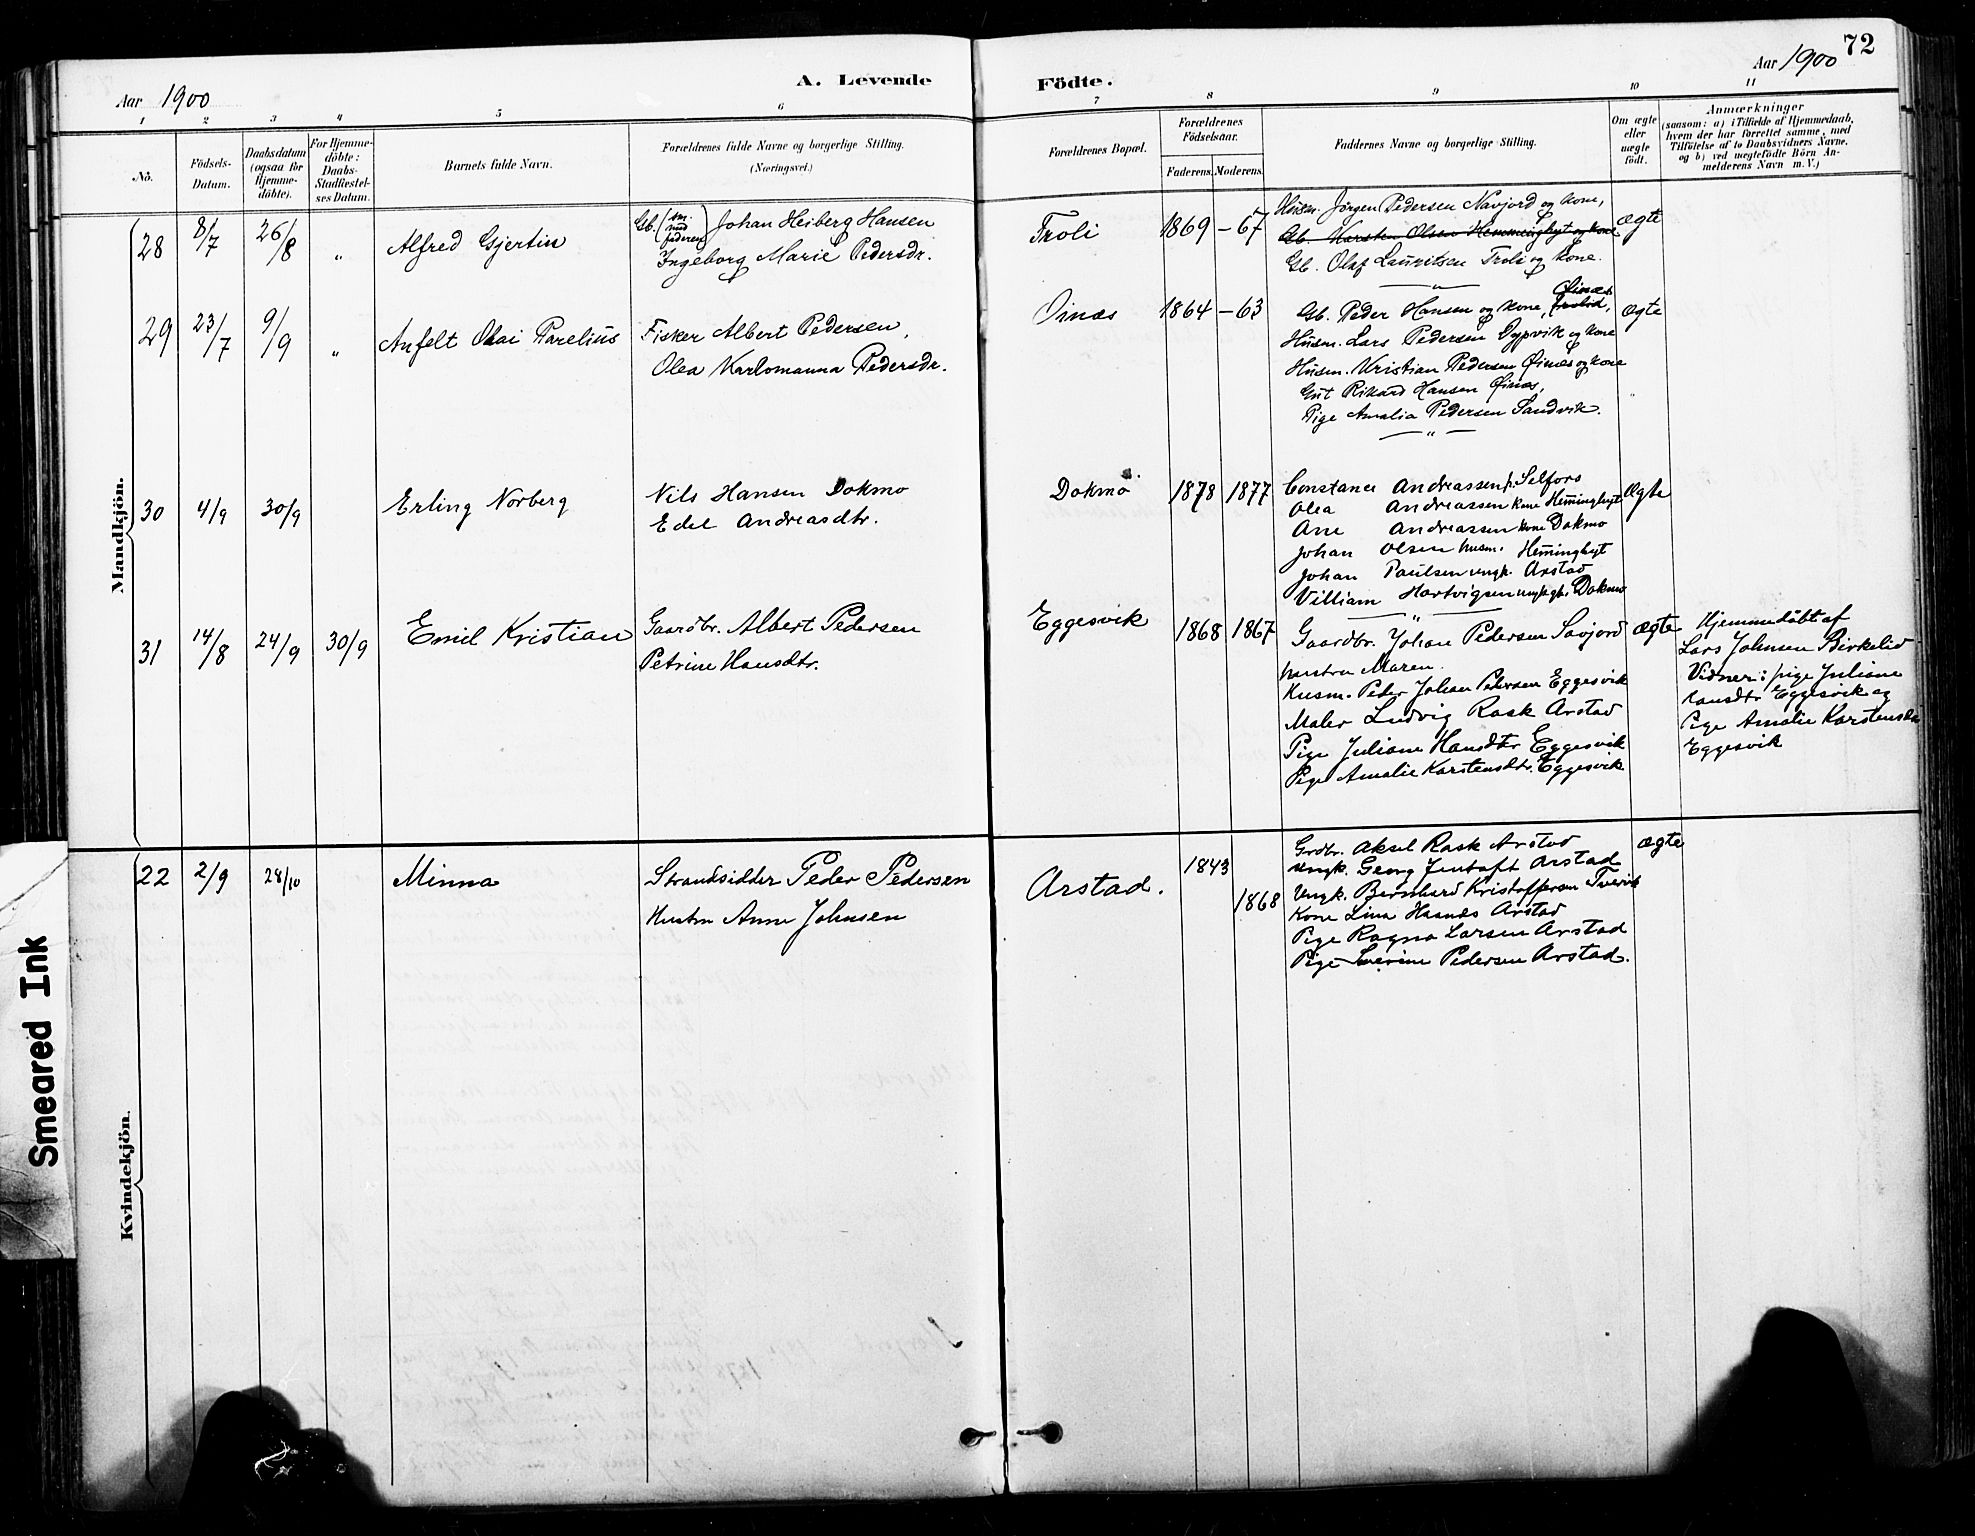 72
Aar 1900
A. Levende
Födte.
Aar 1900
1 2 3 4 5 6 7 8 9 10 11
No.
Födsels-
Datum.
Daabsdatum
(ogsaa for
Hjemme-
döbte).
For Hjemme-
döbte:
Daabs-
Stadfæstel-
ses Datum.
Barnets fulde Navn.
Forældrenes fulde Navne og borgerlige Stilling.
(Næringsvei.)
Forældrenes Bopæl.
Forældrenes
Födselsaar.
Faderens.
Moderens.
Faddernes Navne og borgerlige Stilling.
Om ægte
eller
uægte
født.
Anmærkninger
(saasom: a) i Tilfælde af Hjemmedaab,
hvem der har forrettet samme, med
Tilföielse af to Daabsvidners Navne.
og b) ved uægtefödte Börn An-
melderens Navn m. V.)
Mandkjön.
28 8/7 26/8 „ Alfred Gjertin
Gb. (sm. med faderen) Johan Heiberg Hansen
Ingeborg Marie Pedersdr.
Troli 1869 – 67
Husm. Jörgen Pedersen Navjord og kone,
Gb. Karsten Olsen Hemminghyt og kone
Gb. Olaf Lauritsen Troli og kone.
ægte
29 23/7 9/9 „ Anfelt Olai Parelius
Fisker Albert Pedersen,
Olea Karlomanna Pedersdr.
Oinæs 1864 – 63
Gb. Peder Hansen og kone, Öinæs,
Husm. Lars Pedersen Dypvik og kone
Husm. Kristian Pedersen Öinæs og kone
Gut Rikard Hansen Öinæs,
Pige Amalia Pedersen Sandvik.
ægte
30 4/9 30/9 Erling Norberg
Nils Hansen Dokmo
Edel Andreasdtr.
Dokmo 1878 1877
Constance Andreassen p. Selfors
Olea Andreassen kone Hemminghyt
Ane Andreassen kone Dokmo
Johan Olsen husm. Hemminghyt
Johan Paulsen ungk. Arstad
Villiam Hartvigsen ungk. Dokmo
Ægte
31 14/8 24/9 30/9 Emil Kristian
Gaardbr. Albert Pedersen
Petrine Hansdtr.
Eggesvik 1868 1867
Gaardbr. Johan Pedersen Savjord
hustru Maren.
Husm. Peder Johan Pedersen Eggesvik
Maler Ludvig Rask Arstad
Pige Juliane Hansdtr Eggesvik
Pige Amalie Karstensdtr. Eggesvik
ægte
Hjemmedöbt af
Lars Johnsen Birkelid
Vidner: pige Juliane
Hansdtr Eggesvik og
Pige Amalie Karstensdtr
Eggesvik
Kvindekjön.
22 2/9 28/10 Minna
Strandsidder Peder Pedersen
Hustru Anne Johnsen
Arstad. 1843 1868
Grdbr. Aksel Rask Arstad
Ungk. Georg Jentoft Arstad
Ungk. Bernhard Kristoffersen Tverik
Kone Lina Hasnæs Arstad
Pige Ragna Larsen Arstad
Pige Severine Pedersen Arstad.
ægte
Smeared Ink